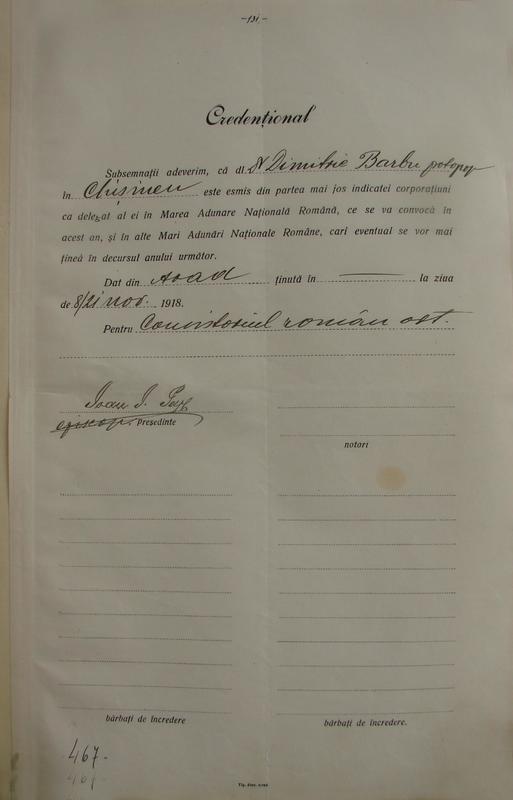 –131.–
Credențional
Subsemnații adeverim, că dl Dr Dimitrie Barbu protopop
în Chișineu este esmis din partea mai jos indicatei corporațiuni
ca delegat al ei în Marea Adunare Națională Română, ce se va convocă în
acest an, și în alte Mari Adunări Naționale Române, cari eventual se vor mai
ținea în decursul anului următor.
Dat din Arad ținută în la ziua
de 8/21 nov. 1918.
Pentru Consistoriul român ort.
Ioan I. Papp
episcop. Președinte
notori
bărbați de încredere
bărbați de încredere.
467-